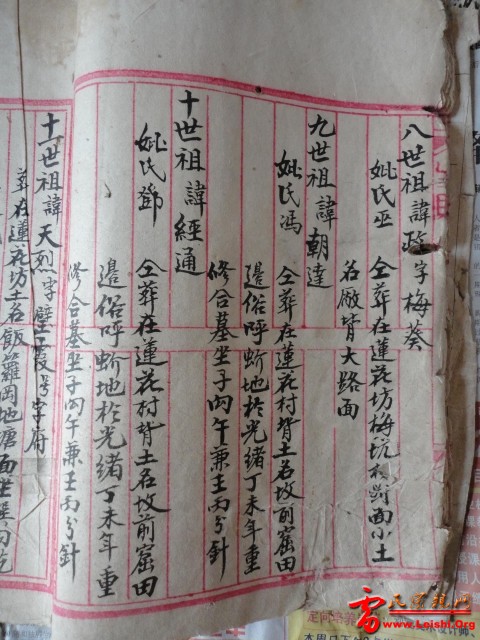 八世祖諱政字梅葵
妣氏巫 仝葬在蓮花坊梅坑 面小土
名廠背大路面
九世祖諱朝達
妣氏馮 仝葬在蓮花村背土名坟前窟田
邉俗呼蚧地於光緒丁未年重
修合墓坐子向午兼壬丙分針
十世祖諱經通
妣氏鄧 仝葬在蓮花村背土名坟前窟田
邉俗呼蚧地於光緒丁未年重
修合墓坐子向午兼壬丙分針
十一世祖諱天烈字璧 号字府
葬在蓮花坊土名飯籮岡地塘面坐巽向乾
雷氏宗親网
www.Leishi.Org